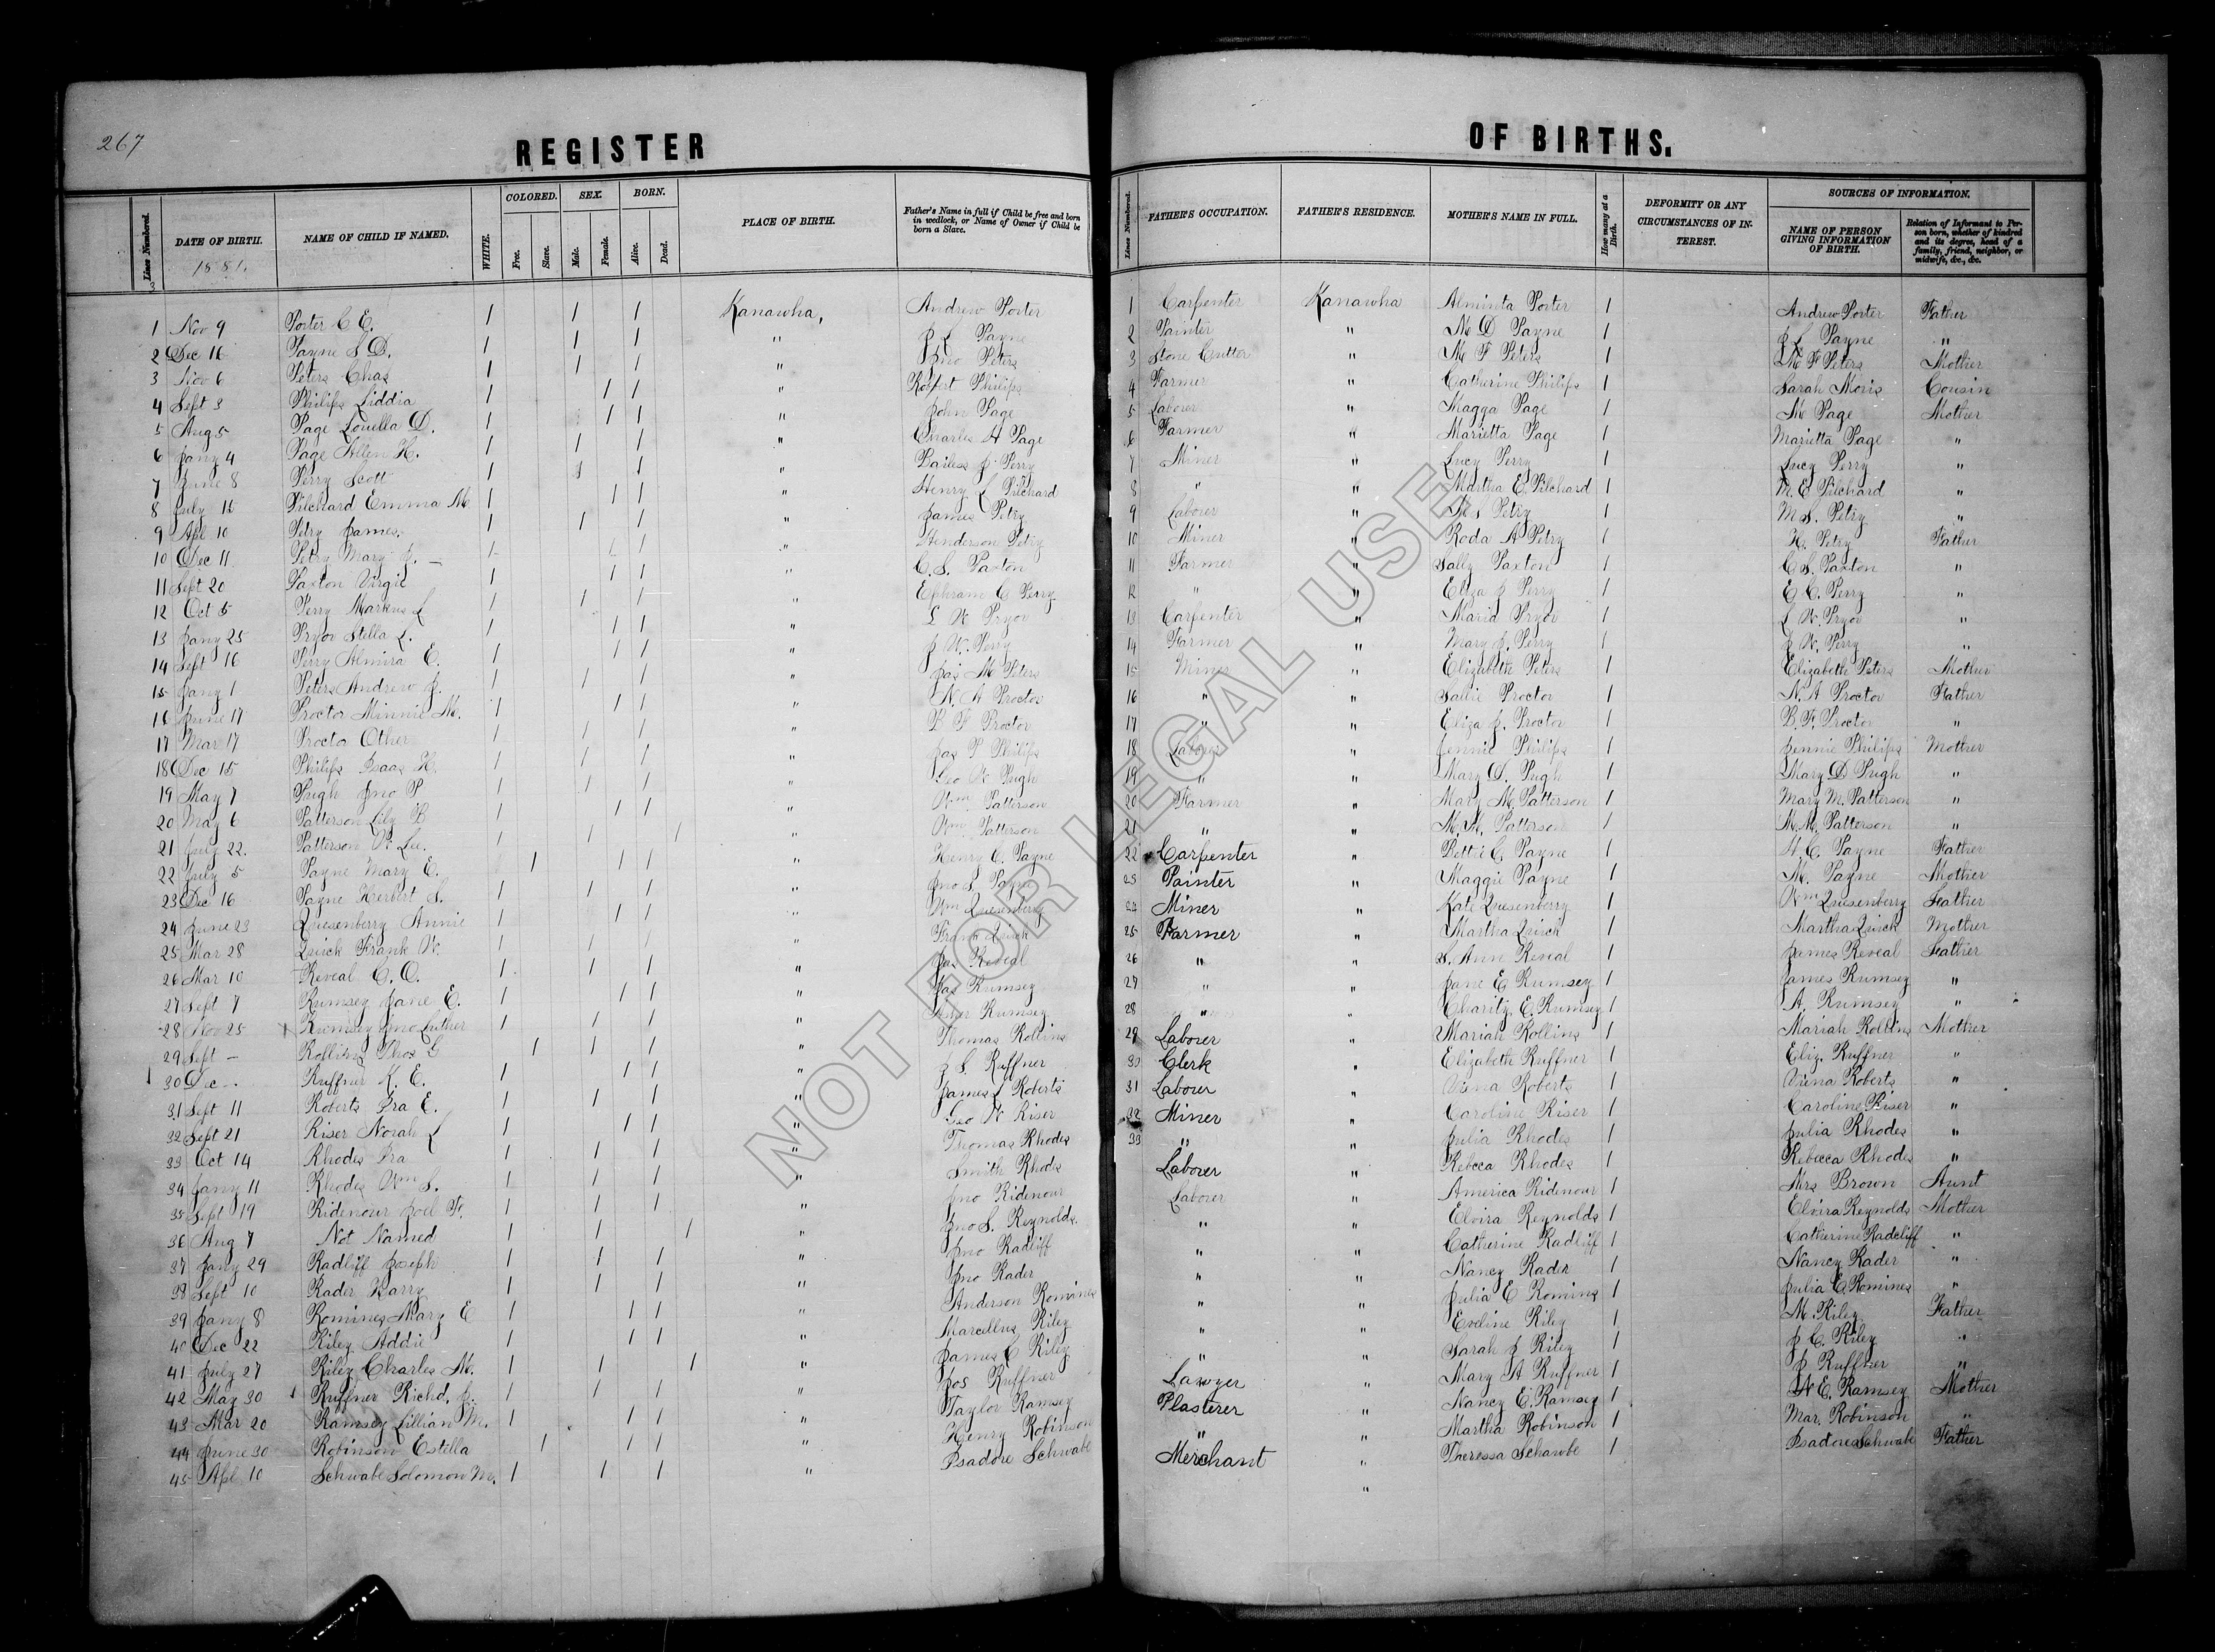 267
REGISTER OF BIRTHS.
Lines Numbered. DATE OF BIRTH. NAME OF CHILD IF NAMED. WHITE. COLORED. Free. Slave. SEX. Mal. Female. BORN. Alive. Dead. PLACE OF BIRTH. Father's Name in full if Child be free and born in wedlock, or Name of Owner if Child be born a Slave. Lines Numbered. FATHER'S OCCUPATION. FATHER'S RESIDENCE. MOTHER'S NAME IN FULL. How many at a Birth. DEFORMITY OR ANY CIRCUMSTANCES OF INTEREST. SOURCES OF INFORMATION. NAME OF PERSON GIVING INFORMATION OF BIRTH. Relation of Informant to Person born, whether of kindred and its degree, head of a family, friend, neighbor, or midwife, &c., &c.
1881.
1 Nov 9 Porter C E. 1 1 1 Kanawha, Andrew Porter 1 Carpenter Kanawha Alminta Porter 1 Andrew Porter Father
2 Dec 16 Payne S D. 1 1 1 " J L Payne 2 Painter " M D Payne 1 J L Payne "
3 Nov 6 Peters Chas 1 1 1 " Jno Peters 3 Stone Cutter " M F Peters 1 M F Peters Mother
4 Sept 3 Philips Liddia 1 1 1 " Robert Philips 4 Farmer " Catherine Philips 1 Sarah Moris Cousin
5 Aug 5 Page Louella D. 1 1 1 " John Page 5 Laborer " Magga Page 1 M Page Mother
6 Jany 4 Page Allen H. 1 1 1 " Charles H Page 6 Farmer " Marietta Page 1 Marietta Page "
7 June 8 Perry Scott 1 1 1 " Bailess J Perry 7 Miner " Lucy Perry 1 Lucy Perry "
8 July 16 Pilchard Emma M 1 1 1 " Henry L Pilchard 8 " " Martha E Pilchard 1 M. E Pilchard "
9 Apl 10 Petry James. 1 1 1 " James Petry 9 Laborer " Petry 1 M S. Petry "
10 Dec 11 Petry Mary J. 1 1 1 " Henderson Petry 10 Miner " Roda A Petry 1 H. Petry Father
11 Sept 20 Paxton Virgie 1 1 1 " C. S. Paxton 11 Farmer " Sally Paxton 1 C S. Paxton "
12 Oct 5 Perry Markus L 1 1 1 " Ephram C Perry 12 " " Eliza J Perry 1 E C. Perry "
13 Jany 25 Pryor Stella L. 1 1 1 " L W Pryor 13 Carpenter " Maria Pryor 1 L W. Pryor "
14 Sept 16 Perry Almira E. 1 1 1 " J W. Perry 14 Farmer " Mary J. Perry 1 J W. Perry "
15 Jany 1 Peters Andrew J. 1 1 1 " Jas M Peters 15 Miner " Elizabeth Peters 1 Elizabeth Peters Mother
16 June 17 Proctor Minnie M. 1 1 1 " N. A Proctor 16 " " Sallie Proctor 1 N. A Proctor Father
17 Mar 17 Procto Other 1 1 1 " B F Proctor 17 " " Eliza J. Proctor 1 B. F. Proctor "
18 Dec 15 Philips Isaac H. 1 1 1 " Jas P Philips 18 Laborer " Jennie Philips 1 Jennie Philips Mother
19 May 7 Pugh Jno P 1 1 1 " Geo W Pugh 19 " " Mary D. Pugh 1 Mary D Pugh "
20 May 6 Patterson Lily B 1 1 1 " Wm Patterson 20 Farmer " Mary M. Patterson 1 Mary M. Patterson "
21 July 22. Patterson W Lee. 1 1 1 " Wm Patterson 21 " " M. M. Patterson 1 M. M. Patterson "
22 July 5 Payne Mary E. 1 1 1 " Henry C. Payne 22 Carpenter " Bettie C. Payne 1 H C. Payne Father
23 Dec 16 Payne Herbert S. 1 1 1 " Jno S Payne 23 Painter " Maggie Payne 1 M. Payne Mother
24 June 23 Quesenberry Annie 1 1 1 " Wm Quesenberry Miner " Kate Quesenberry 1 Wm Quesenberry Father
25 Mar 28 Quick Frank W. 1 1 1 " Frank Quick 25 Farmer " Martha Quick 1 Martha Quick Mother
26 Mar 10 Reveal C. O. 1 1 1 " Jas Reveal 26 " " S. Ann Reveal 1 James Reveal Father
27 Sept 7 Rumsey Jane E. 1 1 1 " Jas Rumsey 27 " " Jane E Rumsey 1 James Rumsey "
28 Nov 25 Rumsey Jno Luther 1 1 1 " Rumsey 28 " " Charity E. Rumsey 1 A. Rumsey "
29 Sept - Rollins Thos G 1 1 1 " Thomas Rollins 29 Laborer " Mariah Rollins 1 Mariah Rollins Mother
30 Dec - Ruffner K. E. 1 1 1 " J S. Ruffner 30 Clerk " Elizabeth Ruffner 1 Eliz. Ruffner "
31 Sept 11 Roberts Ira E. 1 1 1 " James L Roberts 31 Laborer " Viena Roberts 1 Viena Roberts "
32 Sept 21 Riser Norah L 1 1 1 " Geo W Riser 32 Miner " Caroline Riser 1 Caroline Riser "
33 Oct 14 Rhodes Ira 1 1 1 " Thomas Rhodes 33 " " Julia Rhodes 1 Julia Rhodes "
34 Jany 11 Rhodes Wm S. 1 1 1 " Smith Rhods Laborer " Rebcca Rhodes 1 Rebecca Rhodes "
35 Sept 19 Ridenour Joel F. 1 1 1 " Jno Ridenour Laborer " America Ridenour 1 Mrs Brown Aunt
36 Aug 7 Not Named 1 1 1 " Jno S. Reynolds. " " Elvira Reynolds 1 Elvira Reynolds Mother
37 Jany 29 Radliff Joseph 1 1 1 " Jno Radliff " " Catherine Radliff 1 Catherine Radcliff "
38 Sept 10 Rader Harry 1 1 1 " Jno Rader " " Nancy Rader 1 Nancy Rader "
39 Jany 8 Romines Mary E 1 1 1 " Anderson Romines " " Julia E Romins 1 Julia E. Romines "
40 Dec 22 Riley Addie 1 1 1 " Marcellus Riley " " Eveline Riley 1 M. Riley Father
41 July 27 Riley Charles M. 1 1 1 " James C Riley " " Sarah J Riley 1 J C. Riley "
42 May 30 Ruffner Richd. J. 1 1 1 " Jos Ruffner Lawyer " Mary A Ruffner 1 J Ruffner "
43 Mar 20 Ramsey Lillian M. 1 1 1 " Taylor Ramsey Plasterer " Nancy E. Ramsey 1 N E. Ramsey Mother
44 June 30 Robinson Estella 1 1 1 " Henry Robinson " " Martha Robinson 1 Mar. Robinson "
45 Apl 10 Schwabe Solomon M. 1 1 1 " Isadore Schwabe Merchant " Theressa Schawbe 1 Isadore Schwabe Father
NOT FOR LEGAL USE